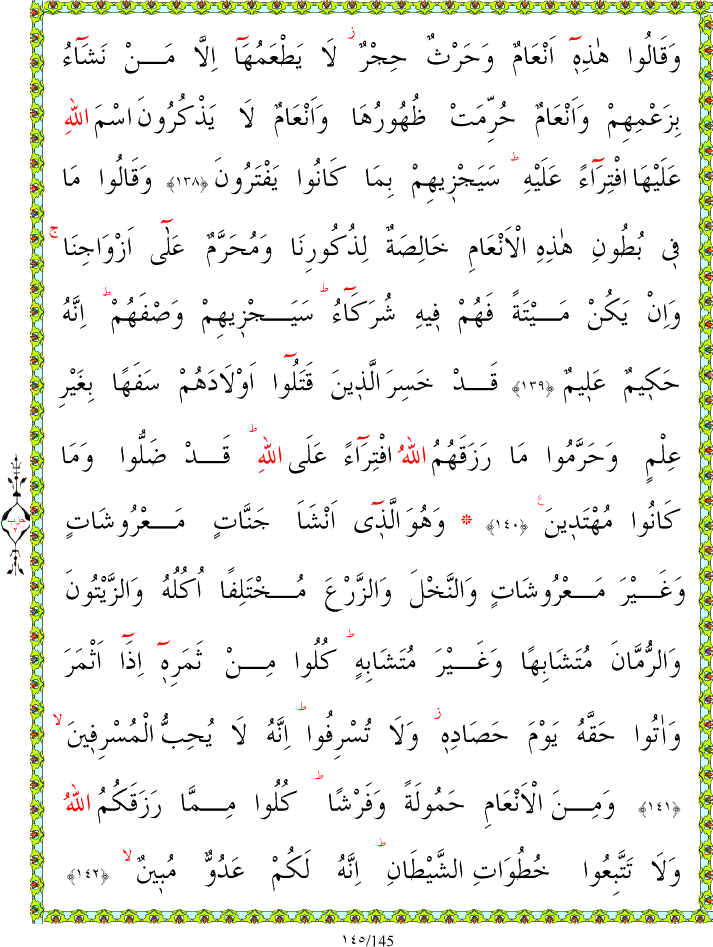 وَقَالُوا هٰذِهٖٓ اَنْعَامٌ وَحَرْثٌ حِجْرٌ ۘ لَا يَطْعَمُهَٓا اِلَّا مَنْ نَشَٓاءُ
بِزَعْمِهِمْ وَاَنْعَامٌ حُرِّمَتْ ظُهُورُهَا وَاَنْعَامٌ لَا يَذْكُرُونَ اسْمَ اللّٰهِ
عَلَيْهَا افْتِرَٓاءً عَلَيْهِ ؕ سَيَجْزٖيهِمْ بِمَا كَانُوا يَفْتَرُونَ ﴿١٣٨﴾ وَقَالُوا مَا
فٖي بُطُونِ هٰذِهِ الْاَنْعَامِ خَالِصَةٌ لِذُكُورِنَا وَمُحَرَّمٌ عَلٰٓى اَزْوَاجِنَا ۚ
وَاِنْ يَكُنْ مَيْتَةً فَهُمْ فٖيهِ شُرَكَٓاءُ ؕ سَيَجْزٖيهِمْ وَصْفَهُمْ ؕ اِنَّهُ
حَكٖيمٌ عَلٖيمٌ ﴿١٣٩﴾ قَدْ خَسِرَ الَّذٖينَ قَتَلُٓوا اَوْلَادَهُمْ سَفَهًا بِغَيْرِ
عِلْمٍ وَحَرَّمُوا مَا رَزَقَهُمُ اللّٰهُ افْتِرَٓاءً عَلَى اللّٰهِ ؕ قَدْ ضَلُّوا وَمَا
كَانُوا مُهْتَدٖينَ ع ﴿١٤٠﴾ ۞ وَهُوَ الَّذٖٓي اَنْشَاَ جَنَّاتٍ مَعْرُوشَاتٍ
وَغَيْرَ مَعْرُوشَاتٍ وَالنَّخْلَ وَالزَّرْعَ مُخْتَلِفًا اُكُلُهُ وَالزَّيْتُونَ
وَالرُّمَّانَ مُتَشَابِهًا وَغَيْرَ مُتَشَابِهٍ ؕ كُلُوا مِنْ ثَمَرِهٖٓ اِذَٓا اَثْمَرَ
وَاٰتُوا حَقَّهُ يَوْمَ حَصَادِهٖ ز وَلَا تُسْرِفُوا ؕ اِنَّهُ لَا يُحِبُّ الْمُسْرِفٖينَ ۙ
﴿١٤١﴾ وَمِنَ الْاَنْعَامِ حَمُولَةً وَفَرْشًا ؕ كُلُوا مِمَّا رَزَقَكُمُ اللّٰهُ
وَلَا تَتَّبِعُوا خُطُوَاتِ الشَّيْطَانِ ؕ اِنَّهُ لَكُمْ عَدُوٌّ مُبٖينٌ ۙ ﴿١٤٢﴾
حزب
٢
١٤٥/145